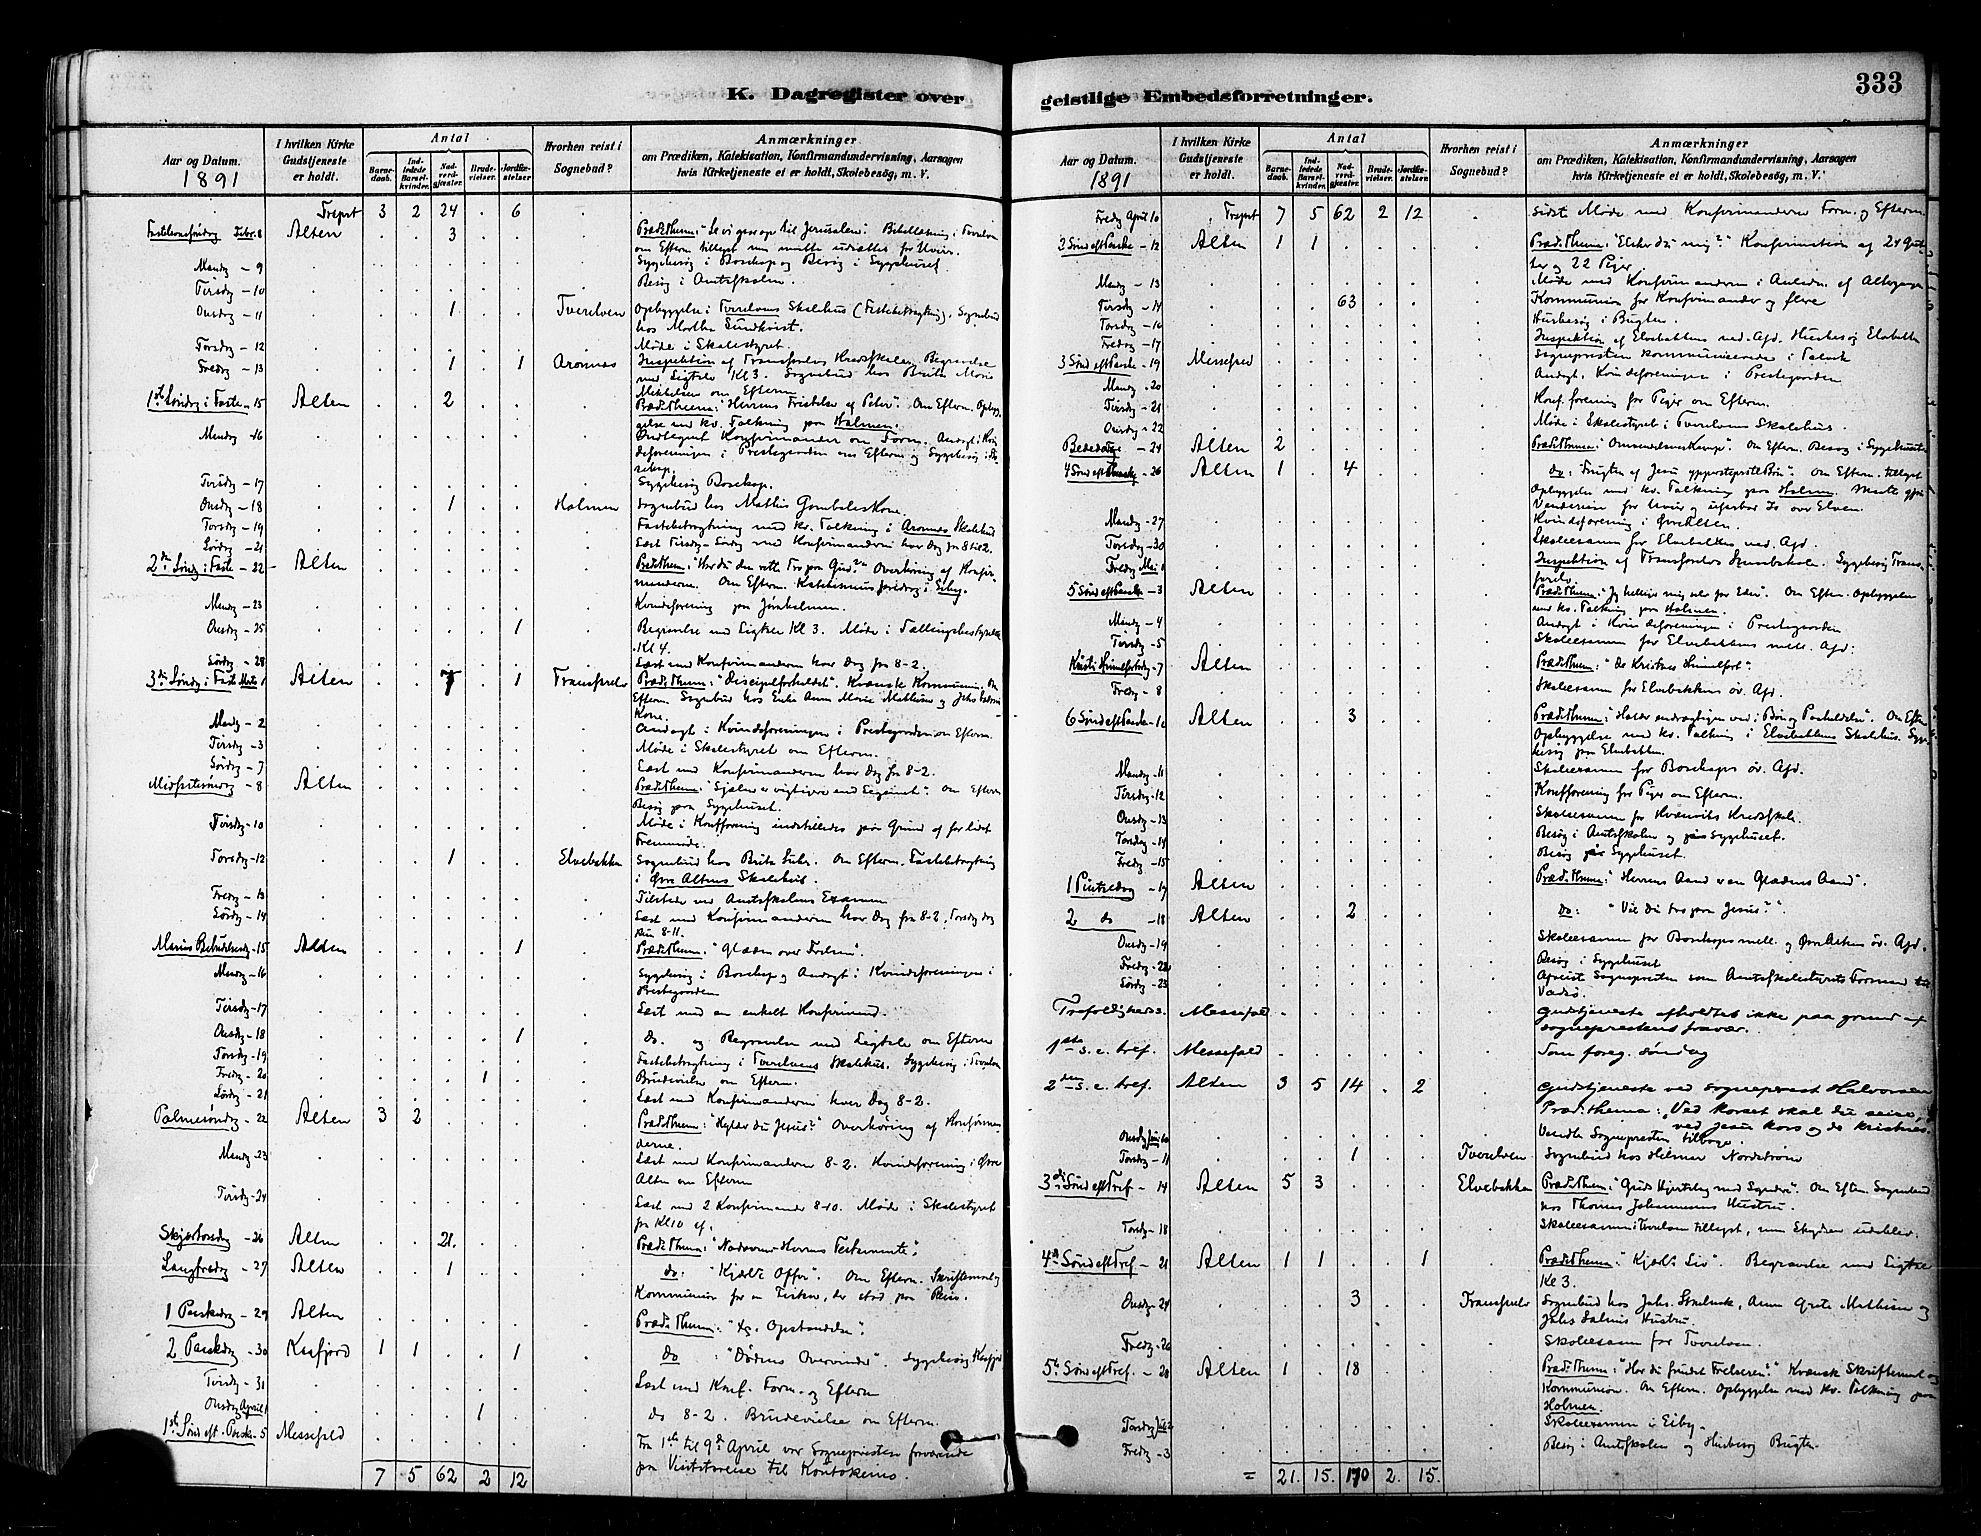 K. Dagregister over
Aar og Datum.
1891
I hvilken Kirke Gudstjeneste er holdt.
Antal
Barnedaab.
Indledede Barselkvinder.
Nadverdgjester.
Brudevielser.
Jordfæstelser
Hvorhen reist i Sognebud?
Anmærkninger
om Prædiken, Katekisation, Konfirmandundervisning, Aarsagen
hvis Kirketjeneste ei er holdt, Skolebesøg, m. V.
Trspt 3 2 24 . 6
Febr. 8 Alten 3 Præd. Thema: "Se vi gaa op til Jerusalem".
Mandg – 9 Sygebesøg i Bosekop og Besøg i Sygehuset.
Tirsdg – 10 Besøg i Amtsskolen.
Onsdg – 11 1 Tverelven Opbyggelse i Tverelvens Skolehus (Fastebetragtning). Sognebud
hos Martha Sundkvist.
Torsdg – 12 Møde i Skolestyret.
Fredg – 13 1 1 Aronnes Inspektion af Kredsskolen. Begravelse
med Ligtale Kl 3. Sognebud hos Brita Marie
Mikkelsen om Efterm.
1ste Søndg i Faste – 15 Alten 2 Præd. Thema: "Herrens Fristelse af Peter". Om Efterm.
med kv. Tolkning paa Holmen.
Mandg – 16
Tirsdg – 17 Sygebesøg Bosekop.
Onsdg – 18 1 Holmen Sognebud hos Mathis Kone.
Torsdg – 19 Fastebetragtning med kv. Tolkning i Aronnes Skolehus
Lørdg – 21 Læst Tirsdg – Lørdg med Konfirmanderne hver Dag fra 8 til 2.
2den Søndg i Faste – 22 Alten Præd. Thema: "Har du den rette Tro paa Gud?" Overhøring af
Om Efterm. Katekismusforedrag i Eiby.
Mandg – 23 Kvindeforening paa
Onsdg – 25 1 Begravelse med Ligtale Kl 3. Møde i
Kl 4.
Lørdg – 28 Læst med Konfirmanderne hver Dag fra 8-2.
3die Søndg i Faste Marts 1 Alten 7 1 Transfarelv Præd. Thema: "Discipelforholdet". Kvænsk Kommunion. Om
Efterm. Sognebud hos Enke Ann Marie Mathisen og
Kone.
Mandg – 2 Andagt i Kvindeforeningen i Prestegaarden om Efterm.
Tirsdg – 3 Møde i Skolestyret om Efterm.
Lørdg – 7 Læst med Konfirmanderne hver Dag fra 8-2.
Midfastesøndg – 8 Alten Præd. Thema: "Sjælen er vigtigere end Legemet". Om Efterm
Besøg paa Sygehuset.
Tirsdg – 10 Møde i Konfforening indstilledes paa Grund af for lidet
Fremmøde.
Torsdg – 12 1 Elvebakken Sognebud hos Brita Om Efterm. Fastebetragtning
i Øvre Altens Skolehus.
Fredg – 13 Tilstede ved Amtsskolens Examen
Lørdg – 14 Læst med Konfirmanderne hver Dag fra 8-2, Torsdg dog
kun 8-11.
Mariæ Bebudelsesdg – 15 Alten 1 Præd. Thema: "Glæden over Frelsen".
Mandg – 16 Sygebesøg i Bosekop og Andagt i Kvindeforeningen i
Prestegaarden
Tirsdg – 17 Læst med en enkelt Konfirmand.
Onsdg – 18 1 do. og Begravelse med Ligtale om Efterm
Torsdg – 19 Fastebetragtning i Tverelvens Skolehus. Sygebesøg i Tverelven
Fredg – 20 1 Brudevielse om Efterm.
Lørdg – 21 Læst med Konfirmanderne hver Dag 8-2.
Palmesøndg – 22 Alten 3 2 Præd. Thema: "Hylder du Jesus?" Overhøring af Konfirmanderne.
Mandg – 23 Læst med Konfirmanderne 8-2. Kvindeforening i Øvre
Alten om Efterm
Tirsdg – 24 Læst med 2 Konfirmander 8-10. Møde i Skolestyret
fra Kl 10 af.
Skjærtorsdg – 26 Alten 21. Præd. Thema: "Nadveren – Herrens Testamente".
Langfredg – 27 Alten 1 do: Om Efterm. Skriftemaal og
Kommunion for en Fisker, der stod paa Reise.
1 Paaskedg – 29 Alten Præd. Thema: Opstandelse".
2 Paaskedg – 30 Kaafjord 1 1 1 do : "Dødens Overvinder". Sygebesøg Kaafjord
Tirsdg – 31 Læst med Konf. Form. og Efterm
Onsdg April 1 1 do 8-2. Brudevielse om Efterm.
1ste Sønd eft. Paaske – 5 Messefald Fra 1ste til 9de April var Sognepresten fraværende
paa Visitatsreise til Koutokeino.
7 5 62 2 12
geistlige Embedsforretninger.
333
Aar og Datum.
1891
I hvilken Kirke Gudstjeneste er holdt.
Antal
Barnedaab.
Indledede Barselkvinder.
Nadverdgjester.
Brudevielser.
Jordfæstelser
Hvorhen reist i Sognebud?
Anmærkninger
om Prædiken, Katekisation, Konfirmandundervisning, Aarsagen
hvis Kirketjeneste ei er holdt, Skolebesøg, m. V.
Fredg April 10 Trspt 7 5 62 2 12 Sidste Møde med Konfirmanderne Form. og Efterm.
2 Sønd eft Paaske – 12 Alten 1 1 Præd. Thema: "Elsker du mig?" Konfirmation af 24 Gutter
og 22 Piger.
Mandg – 13 Møde med Konfirmanderne i Anledn. af Altergangen
Tirsdg – 14 63 Kommunion for Konfirmander og flere
Torsdg – 16 Husbesøg i Bugten.
Fredg – 17 Inspektion af Elvebakkens ned. Afd. Husbesøg Elvebakken
3 Sønd eft Paaske – 19 Messefald Sognepresten kommunicerede i Talvik
Mandg – 20 Andagt. Kvindeforeningen i Prestegaarden
Tirsdg – 21 Konf. forening for Piger om Efterm.
Onsdg – 22 Møde i Skolestyret i Tverelvens Skolehus.
Bededag – 24 Alten 2 Præd. Thema: "Omvendelseskamp". Om Efterm. Besøg i Sygehuset
4 Sønd eft Paaske – 26 Alten 1 4 do: "Frugten af Jesu ypperstepræstelige Bøn". Om Efterm. tillyst
Opbyggelse med kv. Tolkning paa Holmen. Maatte
Vendereise for Uveir og ufarbar Is over Elven.
Mandg – 27 Kvindeforening i Øvrealten.
Torsdg – 30 Skoleexamen for Elvebakkens ned. Afd.
Fredg Mai 1 Inspektion af Transfarelvs Skole. Sygebesøg
5 Sønd eft Paaske – 3 Alten Præd. Thema: "Jeg helliger mig selv for Eder". Om Efterm. Opbyggelse
med kv. Tolkning paa Holmen.
Mandg – 4 Andagt i Kvindeforeningen i Prestegaarden
Tirsdg – 5 Skoleexamen for Elvebakkens mell. Afd.
Kristi Himmelfartsdg – 7 Alten Præd. Thema: "De Kristnes Himmelfart".
Fredg – 8 Skoleexamen for Elvebakkens øv. Afd.
6 Sønd eft Paaske – 10 Alten 3 Præd. Thema: Om Efterm
Opbyggelse med kv. Tolkning i Elvebakkens Skolehus. Sygebesøg
paa Elvebakken.
Mandg – 11 Skoleexamen for Bosekops øv. Afd.
Tirsdg – 12 Konfforening for Piger om Efterm.
Onsdg – 13 Skoleexamen for Kvænviks Kredsskole.
Torsdg – 14 Besøg i Amtsskolen og paa Sygehuset.
Fredg – 15 Besøg paa Sygehuset.
1 Pintsedg – 17 Alten Præd. Thema: "Herrens Aand er en Glædens Aand".
2 do – 18 Alten 2 do: "Vil du tro paa Jesus?".
Onsdg – 19 Skoleexamen for Bosekops mell. og Øvrealtens øv. Afd.
Fredg – 22 Besøg i Sygehuset
Lørdg – 23 Afreist Sognepresten som Amtsskolestyrets Formand til
Vadsø.
Trefoldigheds s. Messefald Gudstjeneste afholdtes ikke paa grund af
sogneprestens fravær.
1ste s. e. tref. Messefald Som foreg. søndag
2den s. e. tref. Alten 3 5 14 . 2 Gudstjeneste ved sogneprest Halvorsen
Præd. thema: "Ved korset skal du seire,
ved Jesu kors og de kristnes.
Onsdg Juni 10 Vendte Sognepresten tilbage.
Torsdg – 11 1 Tverelven Sognebud hos Helmer Nordstrøm
3die Sønd eft Tref – 14 Alten 5 3 Elvebakken Præd. Thema: "Guds Hjertelag med Syndere". Om Efterm. Sognebud
hos Thomas Johannesens Hustru.
Torsdg – 18 Skoleexamen i Tverelven tillyst, men Skyden udeblev.
4de Sønd eft Tref – 21 Alten 1 1 1 Præd. Thema: "Kjærl. Liv". Begravelse med Ligtale
Kl 3.
Onsdg – 24 3 Transfarelv Sognebud hos Johs. Anne Grete Mathisen og
Johs Salmis Hustru.
Fredg – 26 Skoleexamen for Tverelven.
5te Sønd eft Tref. – 28 Alten 1 18 Præd. Thema: "Har du fundet Frelseren?" Kvænsk Skriftemaal og
Kommunion. Om Efterm. Opbyggelse med kv. Tolkning paa
Holmen.
Torsdg Juli 2 Skoleexamen i Eiby.
Fredg – 3 Besøg i Amtsskolen og Husbesøg Bugten.
= 21. 15. 170 2. 15.